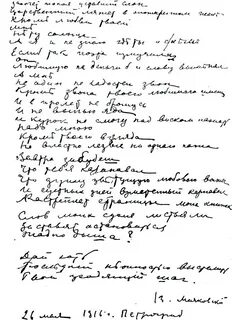 захочет покоя уставший слон
Царственный ляжет в опожаренном песке
Кроме любви твоей
Мне
Нету солнца
А я и не знаю где ты и с кем
Если б так поэта измучила
он
Любимую на деньги б и славу выменял
А мне
Ни один не радостен звон
Кроме звона твоего любимого имени
И в пролет не брошусь
И не выпью яда
И курок не смогу над виском нажать
Надо мною
Кроме твоего взгляда
Не властно лезвие ни одного ножа
Завтра забудешь
Что тебя короновал
Что душу цветущую любовью выжег
И суетных дней взметенный карнавал
Растреплет страницы моих книжек
Слов моих сухие листья ли
Заставят остановиться
Жадно дыша?
Дай хоть
Последней нежностью выстелить
Твой уходящий шаг.
В. Маяковский
26 мая 1916 г. Петроград